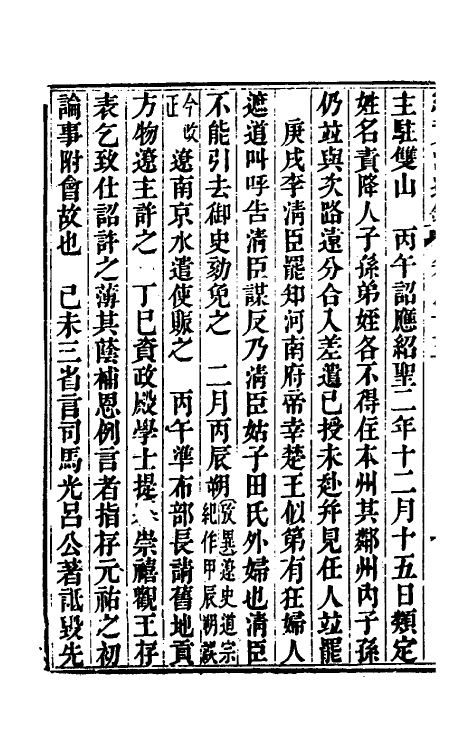 主駐雙山　丙午詔應紹聖二年十二月十五日類定
姓名責降人子孫弟姪各不得住本州其鄰州內子孫
仍竝與次路遠分合入差遣已授未赴幷見任人竝罷
庚戌李清臣罷知河南府帝幸楚王似第有狂婦人
遮道叫呼告清臣謀反乃清臣姑子田氏外婦也清臣
不能引去御史劾免之　二月丙辰朔攷異遼史道宗紀作甲辰朔誤
今改正　遼南京水遣使賑之　丙午準布部長請舊地貢
方物遼主許之　丁巳資政殿學士提崇禧觀王存
表乞致仕詔許之薄其蔭補恩例言者指存元祐之初
論事附會故也　己未三省言司馬光呂公著詆毀先